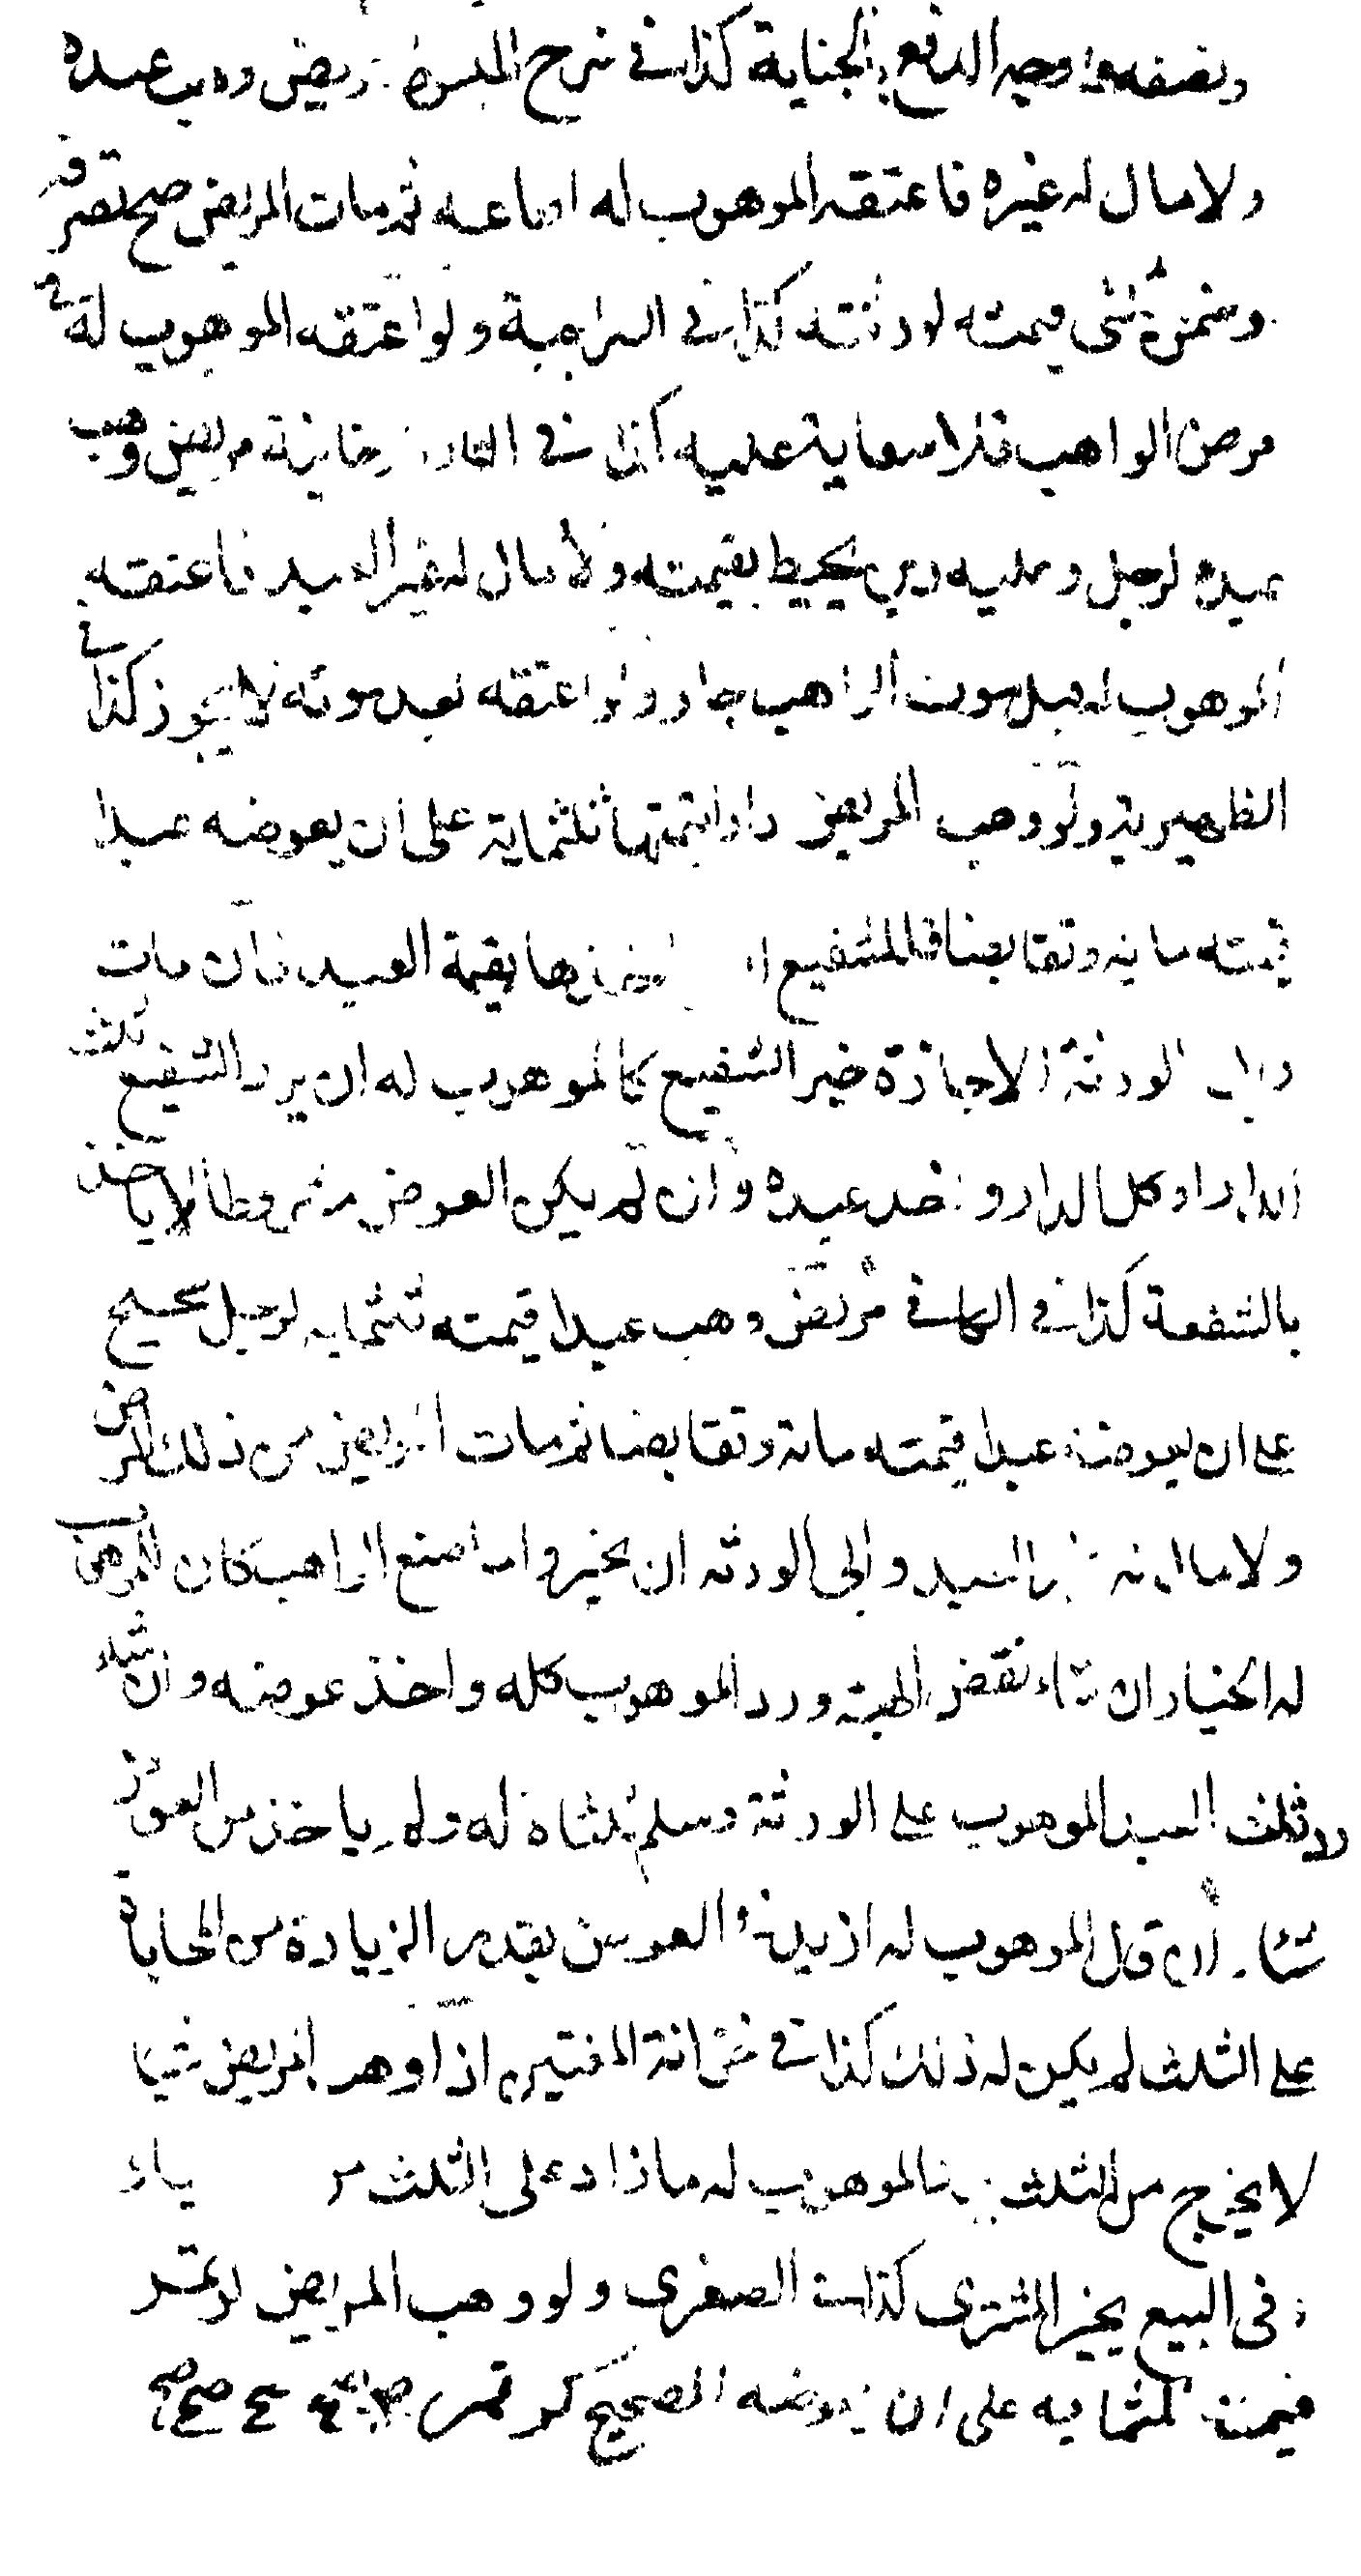 ونصفه هو اوجبه الدفع بالجناية كذا في شرح المبسوط مريض وهب عبده
ولا مال له غيره فاعتقه الموهوب له او باعه ثم مات المريض صح تصرفه
وضمن ثلثي قيمته لورثته كذا في السراجية ولو اعتقه الموهوب له في
مرض الواهب فلا سعاية عليه كذا في التتارخانية مريض وهب
عبده لرجل وعليه دين يحيط بقيمته ولا مال له غير العبد فاعتقه
الموهوب له قبل موت الواهب جاز ولو اعتقه بعد موته لا يجوز كذا في
الظهيرية ولو وهب المريض دارا قيمتها ثلثماية على ان يعوضه عبدا
قيمته ماية وتقابضا فللشفيع ان ياخذها بقيمة العبد فان مات
وابى الورثة الاجازة خير الشفيع كالموهوب له ان يرد الشفيع ثلث
الدار او كل الدار وياخذ عبده وان لم يكن العوض مشروطا لا ياخذ
بالشفعة كذا في الكافي مريض وهب عبدا قيمته ثلثماية لرجل صحيح
على ان يعوضه عبدا قيمته ماية وتقابضا ثم مات المريض من ذلك المرض
ولا مال له غير العبد وابى الورثة ان يجيزوا ما صنع الواهب كان للموهوب
له الخيار ان شاء نقض الهبة ورد الموهوب كله واخذ عوضه وان شاء
رد ثلث العبد الموهوب على الورثة وسلم ثلثاه له ولم ياخذ من العوض
شيئا فان قال الموهوب له ازيد في العوض بقدر الزيادة من المحاباة
على الثلث لم يكن له ذلك كذا في خزانة المفتين اذا وهب المريض شيئا
لا يخرج من الثلث يرد الموهوب له ما زاد على الثلث من
وفى البيع يخير المشترى كذا في الصغرى ولو وهب المريض كر تمر
قيمته ثلثماية على ان يعوضه الصحيح كر تمر